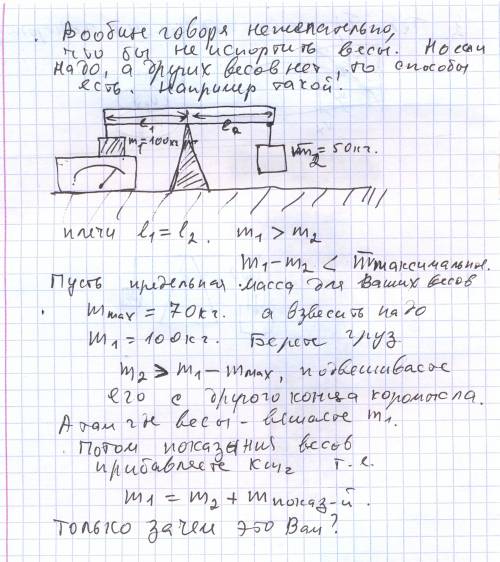 Вообще говоря нежелательно,
что бы не испортить весы. Но если
надо, а других весов нет, то способы
есть. Например такой:
l₁ l₂
m₁=100кг
m₂=50кг.
плечи l₁=l₂. m₁ > m₂
m₁-m₂ < m максимальное.
Пусть предельная масса для Ваших весов
m max = 70кг. а взвесить надо
m₁ = 100кг. Берете груз
m₂ > m₁ - m max, подвешиваете
его с другого конца коромысла.
А там где весы - вешаете m₁.
Потом показания весов
прибавляете к m₂ т.е.
m₁ = m₂ + m показ-й.
Только зачем это Вам?